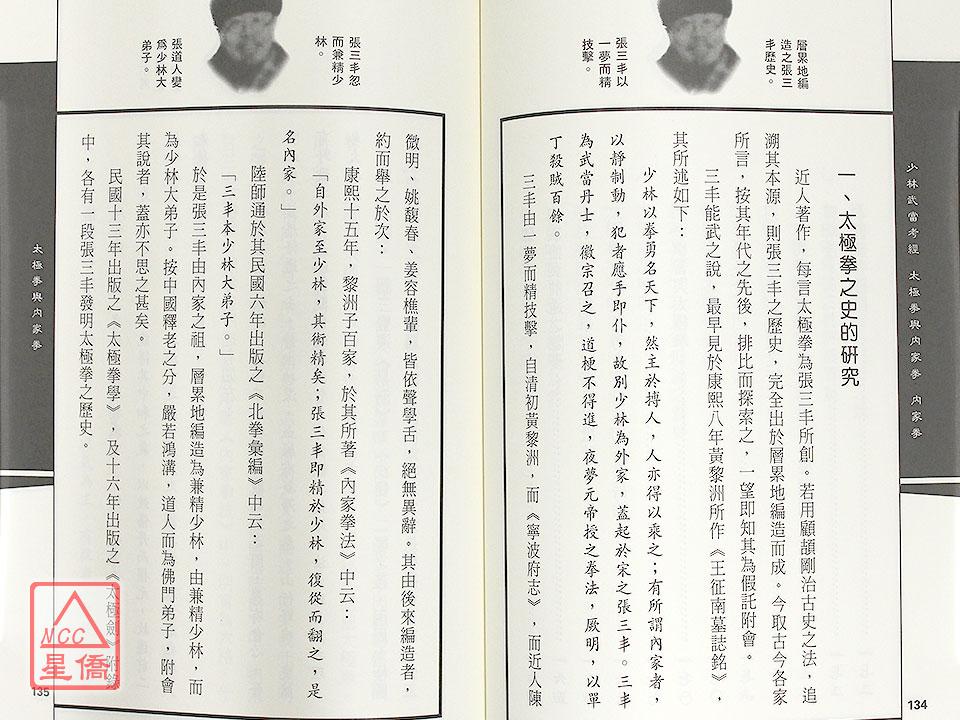 層累地編
造之張三
丰歷史。
張三丰以
一夢而精
技擊。
少林武當考經 太極拳與內家拳 內家拳
一、太極拳之史的研究
近人著作，每言太極拳為張三丰所創。若用顧頡剛治古史之法，追
溯其本源，則張三丰之歷史，完全出於層累地編造而成。今取古今各家
所言，按其年代之先後，排比而探索之，一望即知其為假託附會。
三丰能武之說，最早見於康熙八年黃黎洲所作《王征南墓誌銘》，
其所述如下：
少林以拳勇名天下，然主於搏人，人亦得以乘之；有所謂內家者，
以靜制動，犯者應手即仆，故別少林為外家，蓋起於宋之張三丰。三丰
為武當丹士，徽宗召之，道梗不得進，夜夢元帝授之拳法，厥明，以單
丁殺賊百餘。
三丰由一夢而精技擊，自清初黃黎洲，而《寧波府志》，而近人陳
134
張三丰忽
而兼精少
林。
張道人變
為少林大
弟子。
徵明、姚馥春、姜容樵輩，皆依聲學舌，絕無異辭。其由後來編造者，
約而舉之於次：
康熙十五年，黎洲子百家，於其所著《內家拳法》中云：
「自外家至少林，其術精矣；張三丰即精於少林，復從而翻之，是
名內家。」
陸師通於其民國六年出版之《北拳彙編》中云：
「三丰本少林大弟子。」
於是張三丰由內家之祖，層累地編造為兼精少林，由兼精少林，而
為少林大弟子。按中國釋老之分，嚴若鴻溝，道人而為佛門弟子，附會
其說者，蓋亦不思之甚矣。
民國十三年出版之《太極拳學》，及十六年出版之《太極劍》附錄
中，各有一段張三丰發明太極拳之歷史。
太極拳與內家拳
135
NCC
星僑